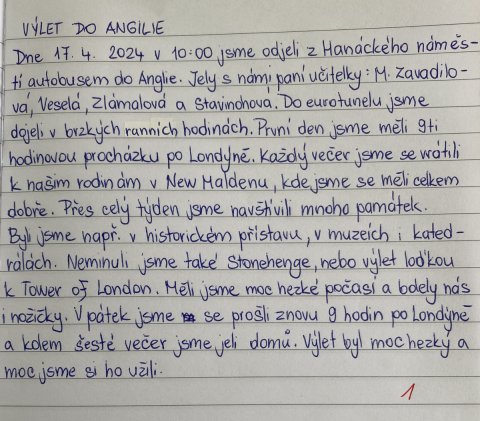 VÝLET DO ANGILIE
Dne 17. 4. 2024 v 10:00 jsme odjeli z Hanáckého náměs-
tí autobusem do Anglie. Jely s námi paní učitelky: M. Zavadilo-
vá, Veselá, Zlámalová a Stavinohová. Do eurotunelu jsme
dojeli v brzkých ranních hodinách. První den jsme měli 9ti
hodinovou procházku po Londýně. Každý večer jsme se vrátili
k našim rodinám v New Maldenu, kde jsme se měli celkem
dobře. Přes celý týden jsme navštívili mnoho památek.
Byli jsme např. v historickém přístavu, v muzeích i kated-
rálách. Neminuli jsme také Stonehenge, nebo výlet loďkou
k Tower of London. Měli jsme moc hezké počasí a bolely nás
i nožičky. V pátek jsme se prošli znovu 9 hodin po Londýně
a kolem šesté večer jsme jeli domů. Výlet byl moc hezký a
moc jsme si ho užili.
1